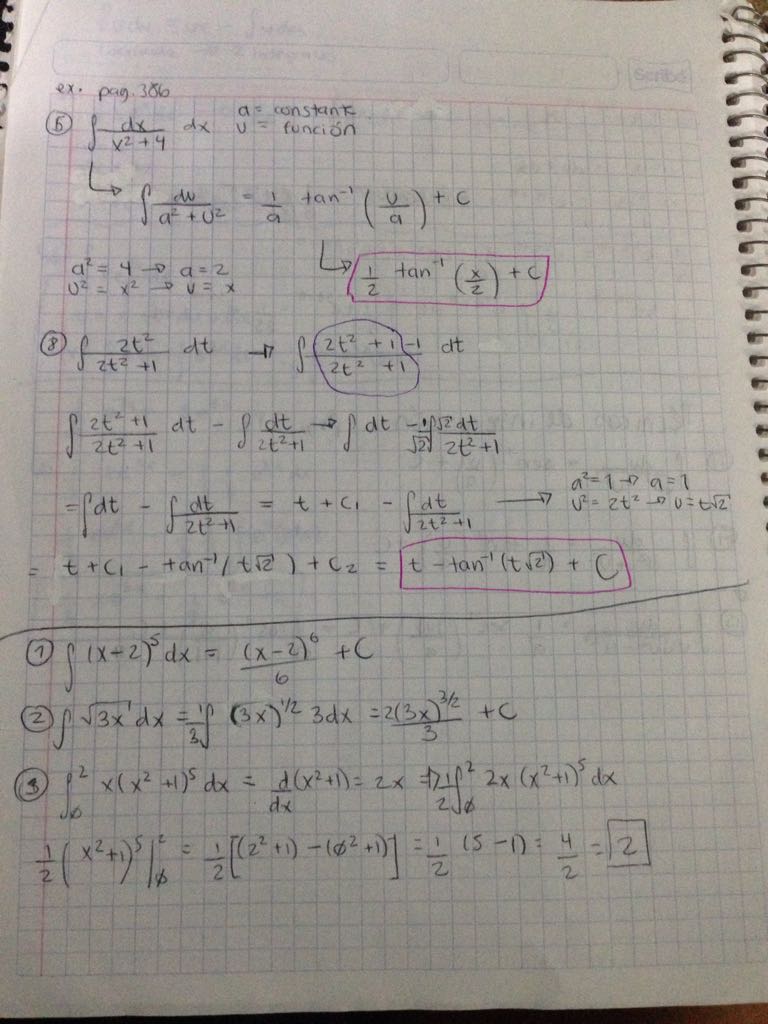 Scribe
ex. pag. 386
a = constante
u = función
⑤ ∫ dx/(x² + 4) dx
∫ du/(a² + u²) = 1/a tan⁻¹ (u/a) + C
a² = 4 → a = 2
u² = x² → u = x
1/2 tan⁻¹ (x/2) + C
⑧ ∫ 2t²/(2t² + 1) dt → ∫ (2t² + 1 - 1)/(2t² + 1) dt
∫ (2t² + 1)/(2t² + 1) dt - ∫ dt/(2t² + 1) → ∫ dt - 1/√2 ∫ √2 dt/(2t² + 1)
a² = 1 → a = 1
= ∫ dt - ∫ dt/(2t² + 1) = t + C₁ - ∫ dt/(2t² + 1) → u² = 2t² → u = t√2
= t + C₁ - tan⁻¹ (t√2) + C₂ = t - tan⁻¹ (t√2) + C
① ∫ (x-2)⁵ dx = (x-2)⁶/6 + C
② ∫ √3x dx = 1/3 ∫ (3x)^1/2 3dx = 2(3x)^3/2/3 + C
③ ∫₀² x(x² + 1)⁵ dx = d/dx (x² + 1) = 2x ⇒ 1/2 ∫₀² 2x (x² + 1)⁵ dx
1/2 (x² + 1)⁵ |₀² = 1/2 [(2² + 1) - (0² + 1)] = 1/2 (5 - 1) = 4/2 = 2